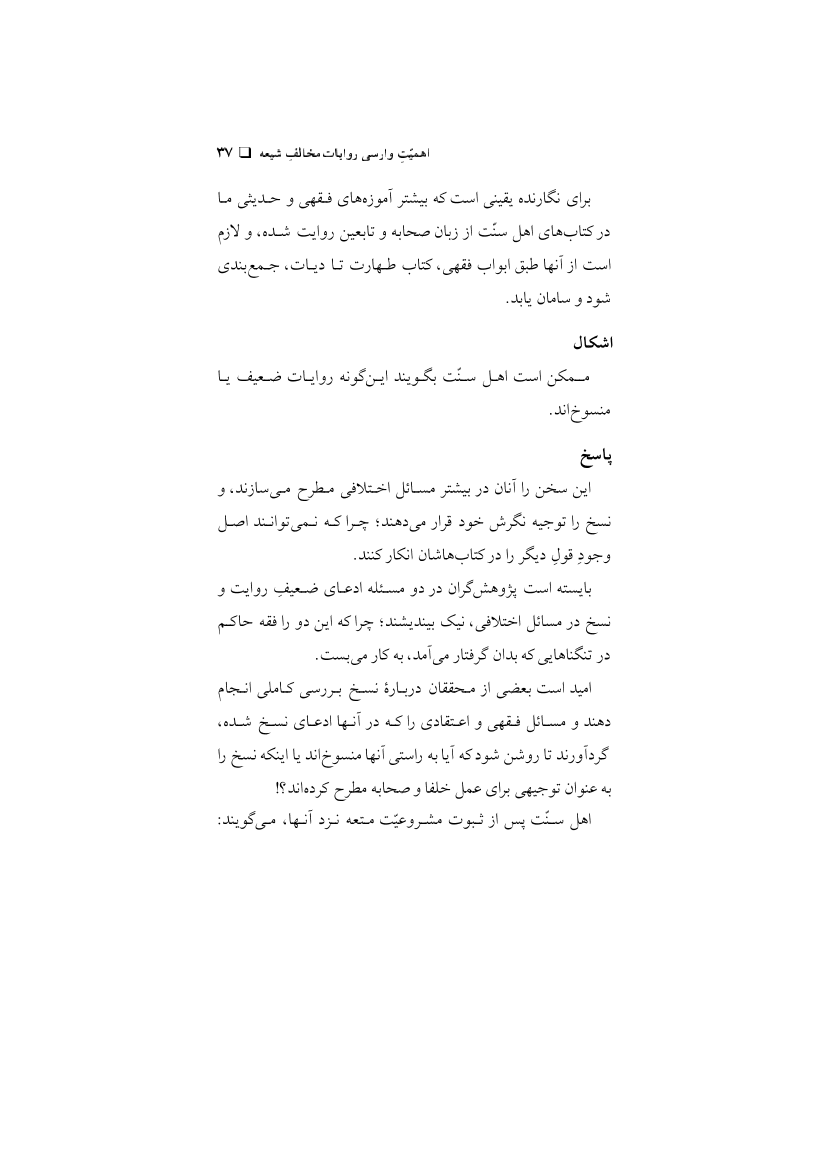 اهمیّتِ وارسی روایات مخالفِ شیعه ❑ ۳۷
برای نگارنده یقینی است که بیشتر آموزه‌های فـقهی و حـدیثی مـا
در کتاب‌های اهل سنّت از زبان صحابه و تابعین روایت شـده، و لازم
است از آنها طبق ابواب فقهی، کتاب طـهارت تـا دیـات، جـمع‌بندی
شود و سامان یابد.
اشکال
مـمکن است اهـل سـنّت بگـویند ایـن‌گونه روایـات ضـعیف یـا
منسوخ‌اند.
پاسخ
این سخن را آنان در بیشتر مسـائل اخـتلافی مـطرح مـی‌سازند، و
نسخ را توجیه نگرش خود قرار می‌دهند؛ چـرا کـه نـمی‌توانـند اصـل
وجودِ قولِ دیگر را در کتاب‌هاشان انکار کنند.
بایسته است پژوهش‌گران در دو مسـئله ادعـای ضـعیفِ روایت و
نسخ در مسائل اختلافی، نیک بیندیشند؛ چرا که این دو را فقه حاکـم
در تنگناهایی که بدان گرفتار می‌آمد، به کار می‌بست.
امید است بعضی از مـحققان دربـارهٔ نسـخ بـررسی کـاملی انـجام
دهند و مسـائل فـقهی و اعـتقادی را کـه در آنـها ادعـای نسـخ شـده،
گردآورند تا روشن شود که آیا به راستی آنها منسوخ‌اند یا اینکه نسخ را
به عنوان توجیهی برای عمل خلفا و صحابه مطرح کرده‌اند؟!
اهل سـنّت پس از ثـبوت مشـروعیّت مـتعه نـزد آنـها، مـی‌گویند: